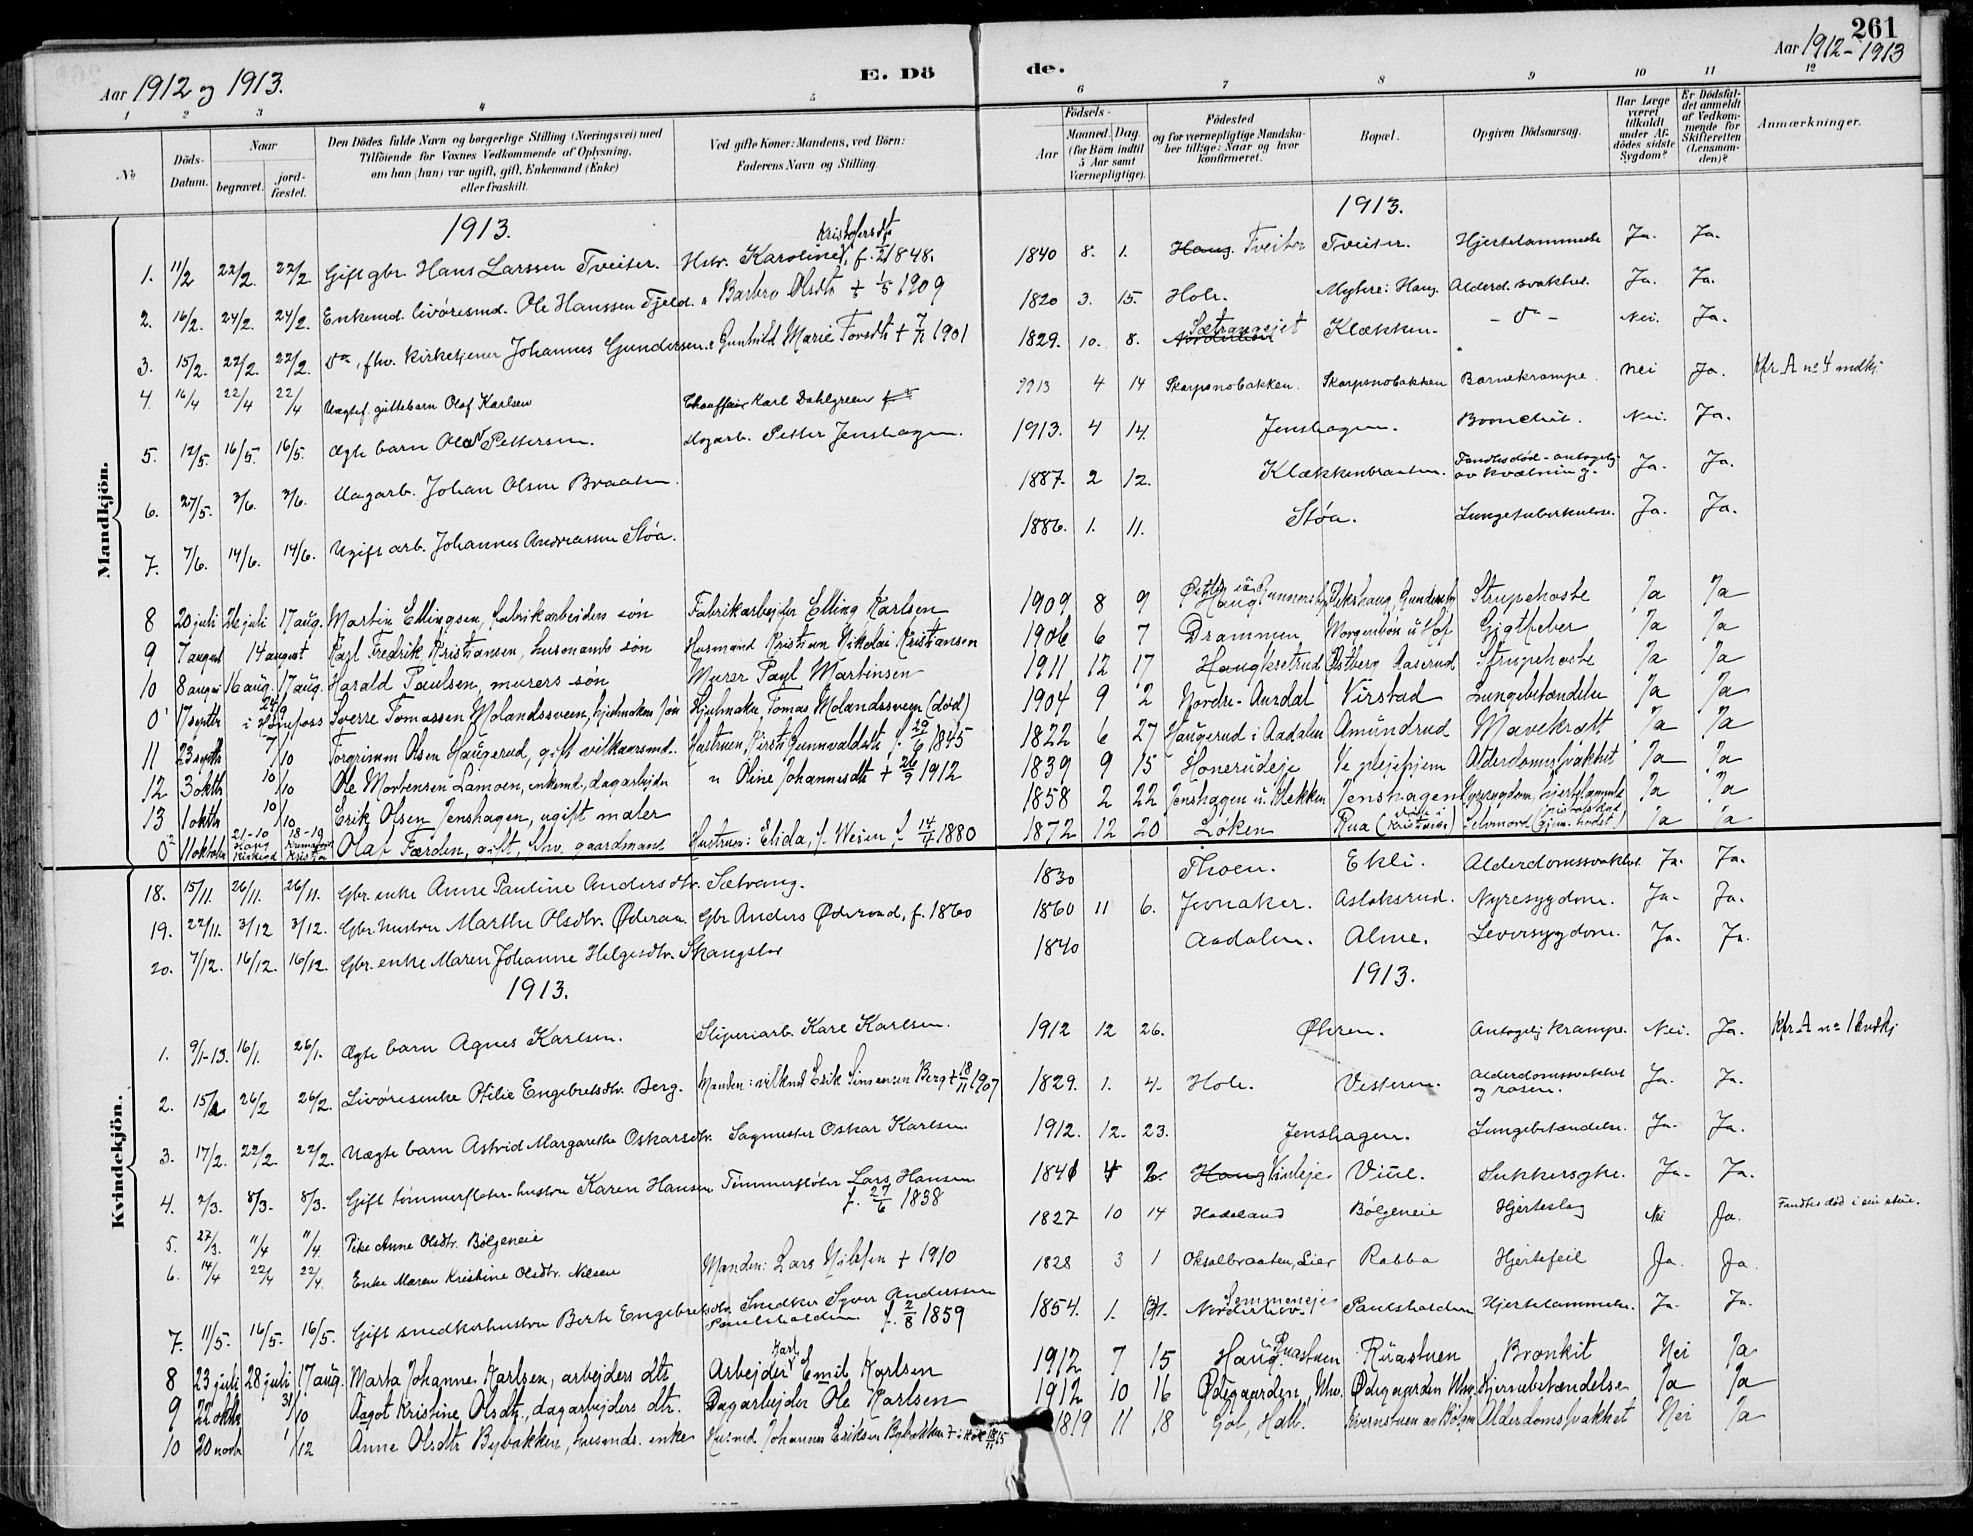 261
Aar 1912 og 1913. E. Dö de. Aar 1912-1913
1 2 3 4 5 6 7 8 9 10 11 12
No Döds-Datum. Naar begravet. jordfæstet. Den Dödes fulde Navn og borgerlige Stilling (Næringsvei) med Tilföiende for Voxnes Vedkommende af Oplysning, om han (hun) var ugift, gift, Enkemand (Enke) eller fraskilt. Ved gifte Koner: Mandens, ved Börn: Faderens Navn og Stilling. Födsels- Aar Maaned. Dag. (for Börn indtil 5 Aar samt Værnepligtige). Födested og for værnepligtige Mandskaber tillige: Naar og hvor konfirmeret. Bopæl. Opgiven Dödsaarsag. Har Læge været tilkaldt under Afdödes sidste Sygdom? Er Dödsfaldet anmeldt af Vedkommende for Skifteretten (Lensmanden)? Anmærkninger.
Mandkjön.
1913. 1913.
1. 11/2 22/2. 22/2 Gift gbr. Hans Larssen Tveiter. Hstr. Karoline Kristofersdtr f. 1848. 1840 8. 1. Haug Tveiter Tveiter. Hjertelammelse Ja. Ja.
2. 16/2. 24/2. 24/2. Enkemd. livöresmd. Ole Hanssen Fjeld. " Barbro Olsdtr + 1/5 1909 1820 3. 15. Hole. Myhre: Haug. Alderd. svakhed. Ja. Ja.
3. 15/2. 22/2. 22/2. do, fhv. kirketjener Johannes Gundersen. " Gunhild Marie Tovsdtr + 1901 1829. 10. 8. Norderhov Sætrangejet Klækken. - do - Nei. Ja.
4. 16/4 22/4 22/4 Uægtef. guttebarn Olaf Karlsen Chauffair Karl Dahlgreen 1913 4 14 Skarpsnobakken. Skarpsnobakken Barnekrampe. nei Ja. Kfr. A no 4 mdkj
5. 12/5. 16/5. 16/5. Ægte barn Olav Pettersen. dagarb. Petter Jenshagen. 1913. 4 14. Jenshagen. Bronchit. Nei. Ja.
6. 27/5. 3/6. 3/6. Dagarb. Johan Olsen Braaten 1887. 2 12. Klækkenbraaten. Fandtes död - antagelig av kvælning. Ja. Ja.
7. 7/6. 14/6. 14/6. Ugift arb. Johannes Andreassen Stöa. 1886. 1. 11. Stöa. Lungetuberkulose. Ja. Ja.
8 20 juli 26 juli 17 aug. Martin Ellingsen, fabrikarbeiders sön Fabrikarbejder Elling Karlsen 1909 8 9 Haug Strupehoste Ja Ja
9 7 august 14 august Karl Fredrik Kristiansen, husmands sön Husmand Kristian Nikolai Kristiansen 1906 6 7 Drammen Morgenbön u Hof Gigtfeber Ja Ja
10 8 august 16 aug. 17 aug. Harald Paulsen, murers sön Murer Paul Martinsen 1911 12 17 Haug Østberg Aaserud Strupehoste Ja Ja
0 17 septbr 24/9 i Hönefoss Sverre Tomassen Molandssveen, hjulmakers sön Hjulmaker Tomas Molandssveen (död) 1904 9 2 Nordre-Aurdal Virstad Lungebetændelse Ja Ja
11 23 septbr 7/10 Torgrimm Olsen Haugerud, gift vilkaarsmd. Hustruen, Kirsti Gunnvaldsdtr f. 19/6 1845 1822 6 27 Haugerud i Aadalen Amundrud Mavekræft Ja Ja
12 3 oktbr 10/10 Ole Mortensen Lamoen, enkemd, dagarbejder " Oline Johannesdtr + 26/9 1912 1839 9 15 Hönerudeje Ve plejehjem Alderdomssvakhet Ja Ja
13 1 oktbr 10/10 Erik Olsen Jenshagen, ugift maler 1858 2 22 Jenshagen u. Klekken Jenshagen Nyresygdom, hjertelammelse Ja Ja
0² 11 oktober 21-10 Haug Kirkegd 18-19 Krematoriet Kristia Olaf Færden, gift, fhv. gaardmand Hustruen: Elida, f. Wesen f. 14/4 1880 1872 12 20 Löken Rua (Kristiania) Selvmord Ja Ja
Kvindekjön.
18. 15/11. 26/11. 26/11. Gbr. enke Anne Pauline Andersdtr. Sætrang. 1830 Thoen. Ekli. Alderdomssvakhet Ja. Ja.
19. 22/11. 3/12 3/12. Gbr. hustru Marthe Olsdtr. Öderaa Gbr Anders Öderaad, f. 1860 1860 11 6. Jevnaker. Aslaksrud. Nyresygdom. Ja. Ja.
20. 7/12. 16/12. 16/12. Gbr. enke Maren Johanne Helgesdtr. Skaugstor 1840 Aadalen. Alme. Leversygdom. Ja. Ja.
1913. 1913.
1. 9/1-13. 16/1. 26/1. Ægte barn Agnes Karlsen. Sliperiarb. Karl Karlsen. 1912 12 26. Öhren. Antagelig krampe. Nei. Ja. Kfr. A no 1 kvdkj
2. 15/2 26/2 26/2. Livöresenke Otilie Engebretsdtr. Berg. Manden: vilkmd Erik Simensen Berg + 18/11 1907 1829. 1. 4. Hole. Vesteren. Alderdomssvakhet og rosen. Ja. Ja.
3. 17/2. 22/2. 22/2. Uægte barn Astrid Margarethe Oskarsdtr. Sagmester Oskar Karlsen 1912. 12. 23. Jenshagen. Lungebetændelse. Ja. Ja.
4. 2/3. 8/3. 8/3. Gift tömmerfløter-hustru Karen Hansen Tömmerflöter Lars Hansen f. 27/6 1838 1841 4 2. Haug Viuleje Viul. Sukkersyke. Ja. Ja.
5. 27/3. 11/4 11/4. Pike Anne Olsdtr. Bölgeneie 1827 10 14 Hadeland Bölgeneie Hjerteslag Nei Ja. Fandtes död i sin stue.
6. 14/4 22/4 22/4. Enke Maren Kristine Olsdtr. Nilsen Manden: Lars Nilsen + 1910 1828 3 1 Oksalbraaten, Lier Rabba Hjertefeil Ja. Ja.
7. 11/5. 16/5. 16/5. Gift snedkerhustru Berte Engebretsdtr. Snedker Syver Anderssen Paulshalden f. 2/8 1859 1854. 1. 31. Norderhov Semmeneje Paulshalden Hjertelammelse. Ja. Ja.
8 23 juli 28 juli 17 aug. Marta Johanne Karlsen, arbejders dtr Arbejder Karl Emil Karlsen 1912 7 15 Haug. Ruastuen Ruastuen Bronkit Nei Ja
9 22 oktbr 31/10 Aagot Kristine Olsdtr., dagarbejders dtr. Dagarbejder Ole Karlsen 1912 10 16 Ødegaarden, Nhv. Ødegaarden Nhv. Hjernebetændelse Ja Ja
10 20 novb 1/12 Anne Olsdtr Bybakken, husmds. enke Husmd. Johannes Eriksen Bybakken 1819 11 18 Gol, Hall. Kvernstuen av Bölgen Alderdomssvakhet Nei Ja